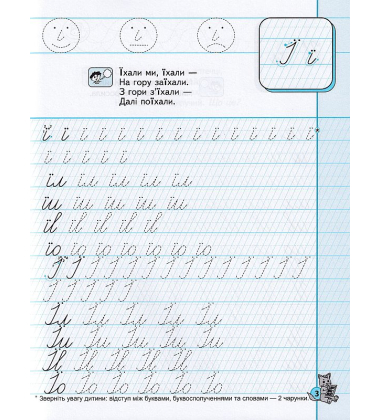 Ї ї
Їхали ми, їхали —
На гору заїхали.
З гори з'їхали —
Далі поїхали.
ї ї ї ї ї ї ї ї ї ї ї ї ї ї ї *
ї ї ї ї ї
їл їл їл їл їл їл
їш їш їш їш їш
її її її її її
їо їо їо їо їо їо
Ї Ї Ї Ї Ї Ї Ї Ї Ї Ї Ї Ї
Ї Ї Ї Ї Ї
Їл Їл Їл Їл Їл
Її Її Її Її Її
Їо Їо Їо Їо Їо
3
* Зверніть увагу дитини: відступ між буквами, буквосполученнями та словами — 2 чарунки.